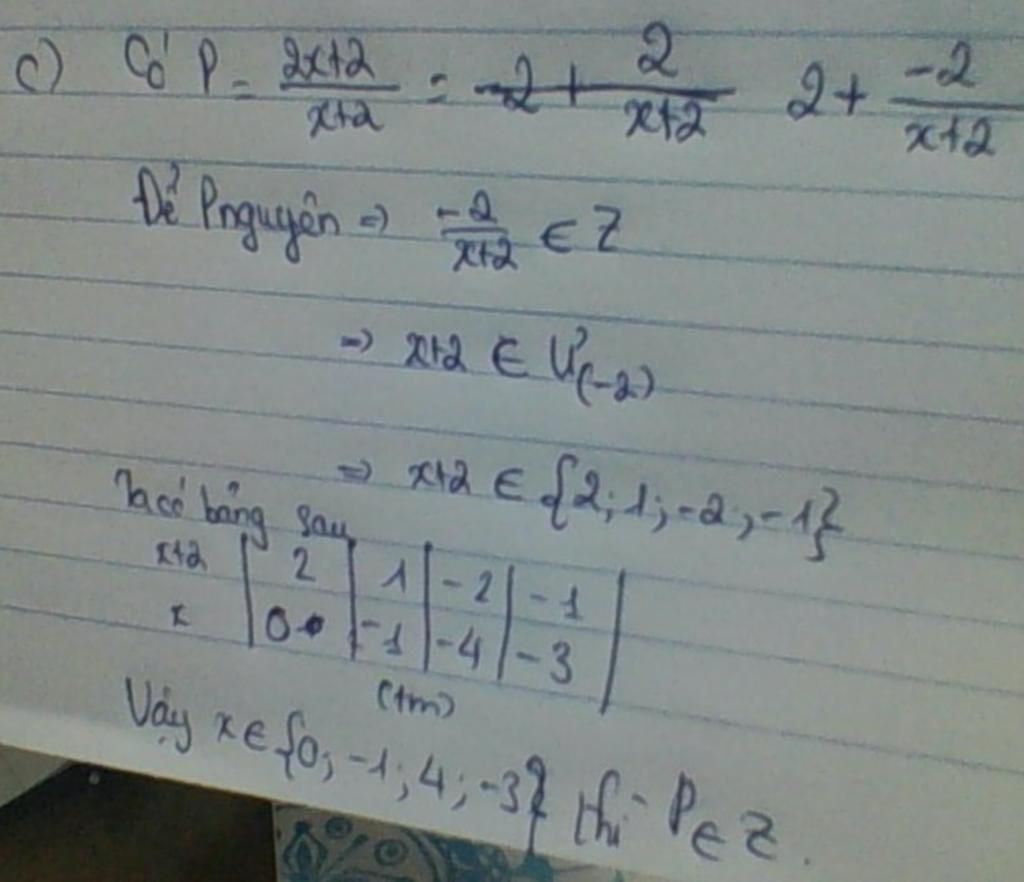 c) Có P = \frac{2x+2}{x+2} = -2 + \frac{2}{x+2} 2 + \frac{-2}{x+2}
Để P nguyên => \frac{-2}{x+2} ∈ Z
=> x+2 ∈ Ư(-2)
=> x+2 ∈ {2; 1; -2; -1}
Ta có bảng sau
x+2 | 2 | 1 | -2 | -1 |
x | 0 | -1 | -4 | -3 |
(tm)
Vậy x ∈ {0; -1; 4; -3} thì P ∈ Z.